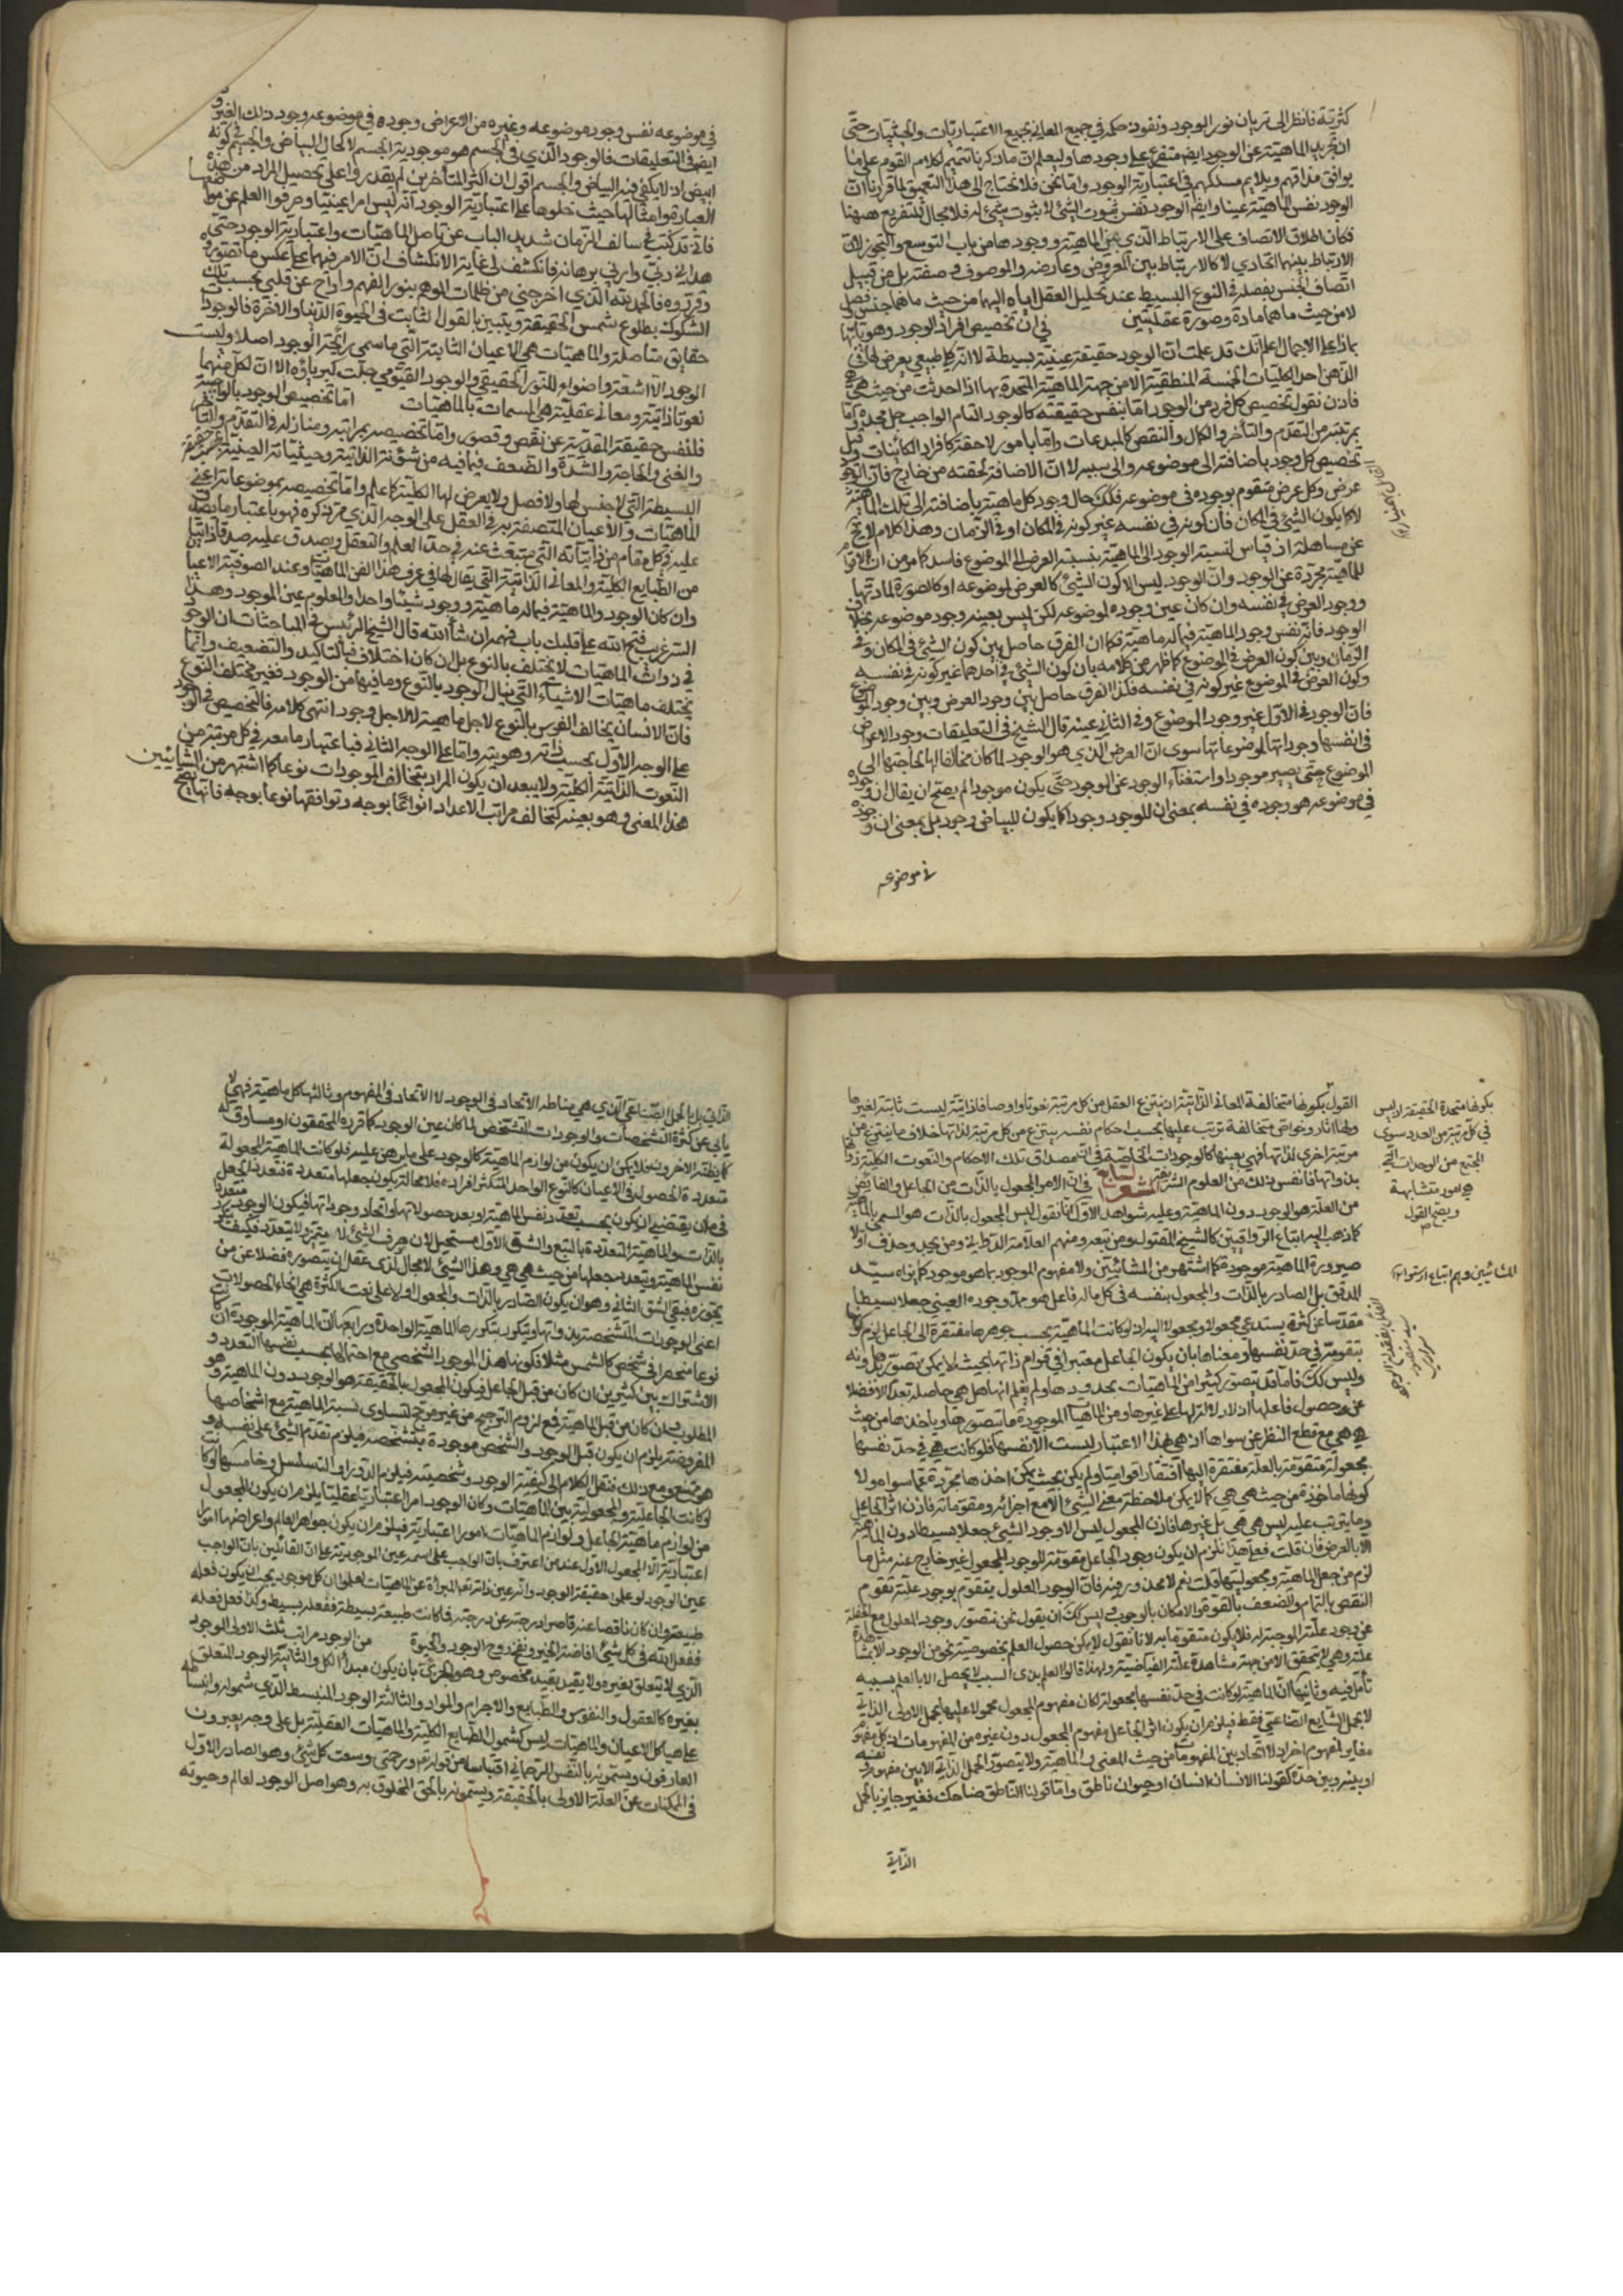 كثرتية فانظر الى سريان نور الوجود ونفوذ حكمه في جميع المعاني بجميع الاعتباريات والحيثيات حتى
ان تجريد الماهية عن الوجود ايضا متفرع على وجودها وليعلم ان ما ذكرنا تتميم لكلام القوم على ما
يوافق مذاقهم ويلايم مسلكهم في اعتبارية الوجود واما نحن فلا نحتاج الى هذا التعمق لما قررنا ان
الوجود نفس الماهية عينا وايضا الوجود نفس ثبوت الشئ لا ثبوت شئ له فلا مجال للتفريع ههنا
فكان اطلاق الاتصاف على الارتباط الذي بين الماهية ووجودها من باب التوسع والتجوز لان
الارتباط بينهما اتحادي لا كالارتباط بين المعروض وعارضه والموصوف وصفته بل من قبيل
اتصاف الجنس بفصله في النوع البسيط عند تحليل العقل اياه اليهما من حيث هما جنس وفصل
لا من حيث ما هما مادة وصورة عقليتين في ان تخصيص افراد الوجود وهوياتها
بماذا على الاجمال اعلم انك قد علمت ان الوجود حقيقة عينية بسيطة لا انه كلي طبيعي يعرض لها في
الذهن احد الكليات الخمسة المنطقية الا من جهة الماهية المتحدة بها اذا اخذت من حيث هي هي
فاذن نقول تخصيص كل فرد من الوجود اما بنفس حقيقته كالوجود التام الواجب جل مجده واما
بمرتبة من التقدم والتأخر والكمال والنقص كالمبدعات واما بامور لاحقة كافراد الكائنات وقيل
تخصيص كل وجود باضافته الى موضوعه والى سببه لا ان الاضافة لحقته من خارج فان الوجود
عرض وكل عرض متقوم بوجوده في موضوعه فكذلك حال وجود كل ماهية باضافته الى تلك الماهية
لا كما يكون الشئ في المكان فان كونه في نفسه غير كونه في المكان او في الزمان وهذا كلام لا يخ
عن مساهلة اذ قياس نسبة الوجود الى الماهية بنسبة العرض الى الموضوع فاسد كما مر من ان لا قوام
للماهية مجردة عن الوجود وان الوجود ليس الا كون الشئ لا كالعرض لموضوعه او كالصورة لمادتها
ووجود العرض في نفسه وان كان عين وجوده لموضوعه لكن ليس بعينه وجود موضوعه بخلاف
الوجود فانه نفس وجود الماهية فيما له ماهية فكما ان الفرق حاصل بين كون الشئ في المكان وفي
الزمان وبين كون العرض في الموضوع كما ظهر من كلامه بان كون الشئ في احدهما غير كونه في نفسه
وكون العرض في الموضوع غير كونه في نفسه فكذا الفرق حاصل بين وجود العرض وبين وجود الموضوع
فان الوجود في الاول غير وجود الموضوع وفي الثاني عينه قال الشيخ في التعليقات وجود الاعراض
في انفسها وجوداتها لموضوعاتها سوى ان العرض الذي هو الوجود لما كان مخالفا لها لحاجتها الى
الموضوع حتى يصير موجودا واستغناء الوجود عن الوجود حتى يكون موجودا لم يصح ان يقال ان وجوده
في موضوعه هو وجوده في نفسه بمعنى ان للوجود وجودا كما يكون للبياض وجود بل بمعنى ان وجوده
في موضوعه
في موضوعه نفس وجود موضوعه وغيره من الاعراض وجوده في موضوعه وجود ذلك الغير و
ايضا في التعليقات فالوجود الذي في الجسم هو موجودية الجسم لا كحال البياض والجسم في كونه
ابيض اذ لا يكفي فيه البياض والجسم اقول ان اكثر المتأخرين لم يقدروا على تحصيل المراد من هذه
العبارة وامثالها حيث حملوها على اعتبارية الوجود انه ليس امرا عينيا وحرفوا الكلم عن مواضعها
فاني قد كنت في سالف الزمان شديد الذب عن تاصل الماهيات واعتبارية الوجود حتى
هداني ربي واراني برهانه فانكشف لي غاية الانكشاف ان الامر فيهما على عكس ما تصوروه
وقرروه فالحمد لله الذي اخرجني من ظلمات الوهم بنور الفهم وازاح عن قلبي سحب تلك
الشكوك بطلوع شمس الحقيقة ويثبتني بالقول الثابت في الحيوة الدنيا والاخرة فالوجودات
حقايق متأصلة والماهيات هي الاعيان الثابتة التي ما شمت رائحة الوجود اصلا وليست
الوجودات الا اشعة واضواء للنور الحقيقي والوجود القيومي جلت كبرياؤه الا ان لكل منها
نعوتا ذاتية ومعاني عقلية هي المسمات بالماهيات اما تخصيص الوجود بالواجبية
فلنفس حقيقته المقدسة عن نقص وقصور واما تخصيصه بمراتبه ومنازله في التقدم والتأخر
والغنى والحاجة والشدة والضعف فبما فيه من شؤنه الذاتية وحيثياته العينية بحسب حقيقته
البسيطة التي لا جنس لها ولا فصل ولا يعرض لها الكلية كما علم واما تخصيصه بموضوعاته اعني
الماهيات والاعيان المتصفة به في العقل على الوجه الذي مر ذكره فهو باعتبار ما يصدق
عليه في كل مقام من ذاتياته التي تنبعث عنه في حد العلم والتعقل ويصدق عليه صدقا ذاتيا
من الطبايع الكلية والمعاني الذاتية التي يقال لها في عرف هذا الفن الماهيات وعند الصوفية الاعيان
وان كان الوجود والماهية فيما له ماهية ووجود شيئا واحدا والمعلوم عين الموجود وهذا
السر غريب فتح الله على قلبك باب فهمه ان شاء الله قال الشيخ الرئيس في المباحثات ان الوجود
في ذوات الماهيات لا يختلف بالنوع بل ان كان اختلاف فبالتاكيد والتضعيف وانما
يختلف ماهيات الاشياء التي تنال الوجود بالنوع وما فيها من الوجود فغير مختلف النوع
فان الانسان يخالف الفرس بالنوع لاجل ماهيته لا لاجل وجوده انتهى كلامه فالتخصيص في الوجود
على الوجه الاول بحسب ذاته وهويته واما على الوجه الثاني فباعتبار ما معه في كل مرتبة من
النعوت الذاتية الكلية ولا يبعد ان يكون المراد بتخالف الموجودات نوعا كما اشتهر من المشائيين
هذا المعنى وهو بعينه كتخالف مراتب الاعداد انواعا بوجه وتوافقها نوعا بوجه فانها يصح
القول بكونها متخالفة المعاني الذاتية ان ينتزع العقل من كل مرتبة نعوتا واوصافا ذاتية ليست ثابتة لغيرها
ولها اثار وخواص متخالفة ترتب عليها بحسب احكام نفسه ينتزع من كل مرتبة لذاتها خلاف ما ينتزع من
مرتبة اخرى لذاتها فهي بعينها كالوجودات الخاصة في ان مصداق تلك الاحكام والنعوت الكلية ذواتها
بذواتها فاتقن ذلك من العلوم الشريفة المشعر السابع في ان الامر المجعول بالذات من الجاعل والفائض
من العلة هو الوجود دون الماهية وعليه شواهد الاول انا نقول ليس المجعول بالذات هو المسمى بالماهية
كما ذهب اليه اتباع الرواقيين كالشيخ المقتول ومن تبعه ومنهم العلامة الدواني ومن يحذو حذوه ولا
صيرورة الماهية موجودة كما اشتهر من المشائيين ولا مفهوم الموجود بما هو موجود كما يراه سيد
المدقق بل الصادر بالذات والمجعول بنفسه في كل ما له فاعل هو نحو وجوده العيني جعلا بسيطا
مقدسا عن كثرة يستدعي مجعولا ومجعولا اليه اذ لو كانت الماهية بحسب جوهرها مفتقرة الى الجاعل لزم كونها
متقومة في حد نفسها ومعناها بان يكون الجاعل معتبرا في قوام ذاتها بحيث لا يمكن تصورها بدونه
وليس كذلك فانا قد نتصور كثيرا من الماهيات بحدودها ولم نعلم انها هل هي حاصلة بعد ام لا فضلا
عن حصول فاعلها اذ لا دلالة لها على غيرها ومن الماهيات الموجودة ما نتصورها وناخذها من حيث
هي هي مع قطع النظر عن سواها اذ هي بهذا الاعتبار ليست الا نفسها فلو كانت هي في حد نفسها
مجعولة متقومة بالعلة مفتقرة اليها افتقارا قواميا ولم يكن بحيث يمكن اخذها مجردة عما سواه ولا
كونها ماخوذة من حيث هي هي كما لا يمكن ملاحظة معنى الشئ الا مع اجزائه ومقوماته فاذن اثر الجاعل
وما يترتب عليه ليس هي هي بل غيرها فاذن المجعول ليس الا وجود الشئ جعلا بسيطا دون الماهية
الا بالعرض فان قلت فعلى هذا يلزم ان يكون وجود الجاعل مقوما للوجود المجعول غير خارج عنه مثل ما
لزم من جعل الماهية ومجعوليتها قلت نعم لا محذور فيه فان الوجود المعلول يتقوم بوجود علته تقوم
النقص بالتمام والضعف بالقوة والامكان بالوجوب وليس لك ان يقول نحن نتصور وجود المعلول مع الغفلة
عن وجود علته الموجبة له فلا يكون متقوما به لانا نقول لا يمكن حصول العلم بخصوصية نحو من الوجود الا بمشاهدة
علته وهي لا يتحقق الا من جهة مشاهدة علته الفياضية ولهذا قالوا العلم بذي السبب لا يحصل الا بالعلم بسببه
تأمل فيه وثانيها ان الماهية لو كانت في حد نفسها مجعولة لكان مفهوم المجعول محمولا عليها بالحمل الاولى الذاتي
لا بحمل الشايع الصناعي فقط فيلزم ان يكون اثر الجاعل مفهوم المجعول دون غيره من المفهومات اذ كل مفهوم
مغاير لمفهوم اخر اذ لا اتحاد بين المفهومات من حيث المعنى والماهية ولا يتصور الحمل الذاتي الا بين مفهوم ونفسه
او بينه وبين حده كقولنا الانسان انسان او حيوان ناطق واما قولنا الناطق ضاحك فغير جايز بالحمل
الذاتي
بكونها متحدة الحقيقة اذ ليس
في كل مرتبة من العدد سوى
المجتمع من الوحدات التي
هي امور متشابهة
ويصح القول
المشائيين وهم اتباع ارسطو
الذاتي بل بالحمل الصناعي الذي هي مناطه الاتحاد في الوجود لا الاتحاد في المفهوم وثالثها كل ماهية فهي لا
يأبى عن كثرة التشخصات والوجودات التشخص لما كان عين الوجود كما قرره المحققون او مساوق له
كما يظنه الاخرون فلا يمكن ان يكون من لوازم الماهية كالوجود على ما برهن عليه فلو كانت الماهية المجعولة
متعددة الحصول في الاعيان كالنوع الواحد المتكثر افراده فلا محالة يكون جعلها متعددة فتعدد الجعل
في ان يقتضي ان يكون بحسب تعدد نفس الماهية او بعد حصولاتها وانحاء وجوداتها فيكون الوجود متعددا
بالذات والماهية المتعددة بالتبع والشق الاول مستحيل لان صرف الشئ لا يتميز ولا يتعدد فكيف يتكرر
نفس الماهية ويتعدد جعلها من حيث هي هي وهذا الشئ لا مجال لذي عقل ان يتصوره فضلا عن من
يجوزه فبقي الشق الثاني وهو ان يكون الصادر بالذات والمجعول اولا على نعت الكثرة هي انحاء الحصولات
اعني الوجودات المتشخصة بذواتها ويتكرر بتكررها الماهية الواحدة ورابعها ان الماهية الموجودة ان كانت
نوعا منحصرا في شخص كالشمس مثلا فكونها هذا الموجود الشخصي مع احتمالها بحسب نفسها التعدد و
الاشتراك بين كثيرين ان كان من قبل الجاعل فيكون المجعول بالحقيقة هو الوجود دون الماهية وهو
المطلوب وان كان من قبل الماهية فمع لزوم الترجيح من غير مرجح لتساوي نسبة الماهية مع اشخاصها
المفروضة يلزم ان يكون قبل الوجود والتشخص موجودة متشخصة فيلزم تقدم الشئ على نفسه و
هو ممتنع ومع ذلك ننقل الكلام الى كيفية الوجود وشخصيته فيلزم الدور او التسلسل وخامسها لو كانت
لو كانت الجاعلية والمجعولية بين الماهيات وكان الوجود امرا اعتباريا عقليا يلزم ان يكون المجعول
من لوازم ماهية الجاعل ولوازم الماهيات امورا اعتبارية فيلزم ان يكون جواهر العالم واعراضها امورا
اعتبارية الا المجعول الاول عند من اعترف بان الواجب جل اسمه عين الموجودية على ان القائلين بان الواجب
عين الوجود لو علموا حقيقة الوجود وانه عين ذاته تعالى المبرئة عن الماهيات لعلموا ان كل موجود يجب ان يكون فعله
طبيعته وان كان ناقصا عنه قاصرا درجته عن درجته فلما كانت طبيعته بسيطة ففعله بسيط وكذا فعل فعله
ففعل الله في كل شئ افاضة الخير ونفخ روح الوجود والحيوة من الوجود مراتب ثلث الاولى الوجود
الذي لا يتعلق بغيره ولا يتقيد بقيد مخصوص وهو الحري بان يكون مبدأ الكل والثانية الوجود المتعلق
بغيره كالعقول والنفوس والطبايع والاجرام والمواد والثالثة الوجود المنبسط الذي شموله وانبساطه
على هياكل الاعيان والماهيات ليس كشمول الطبايع الكلية والماهيات العقلية بل على وجه يعرفون
العارفون ويسمونه بالنفس الرحماني اقتباسا من قوله تعالى ورحمتي وسعت كل شئ وهو الصادر الاول
في الممكنات عن العلة الاولى بالحقيقة ويسمونه بالحق المخلوق به وهو اصل الوجود العالم وحيوته